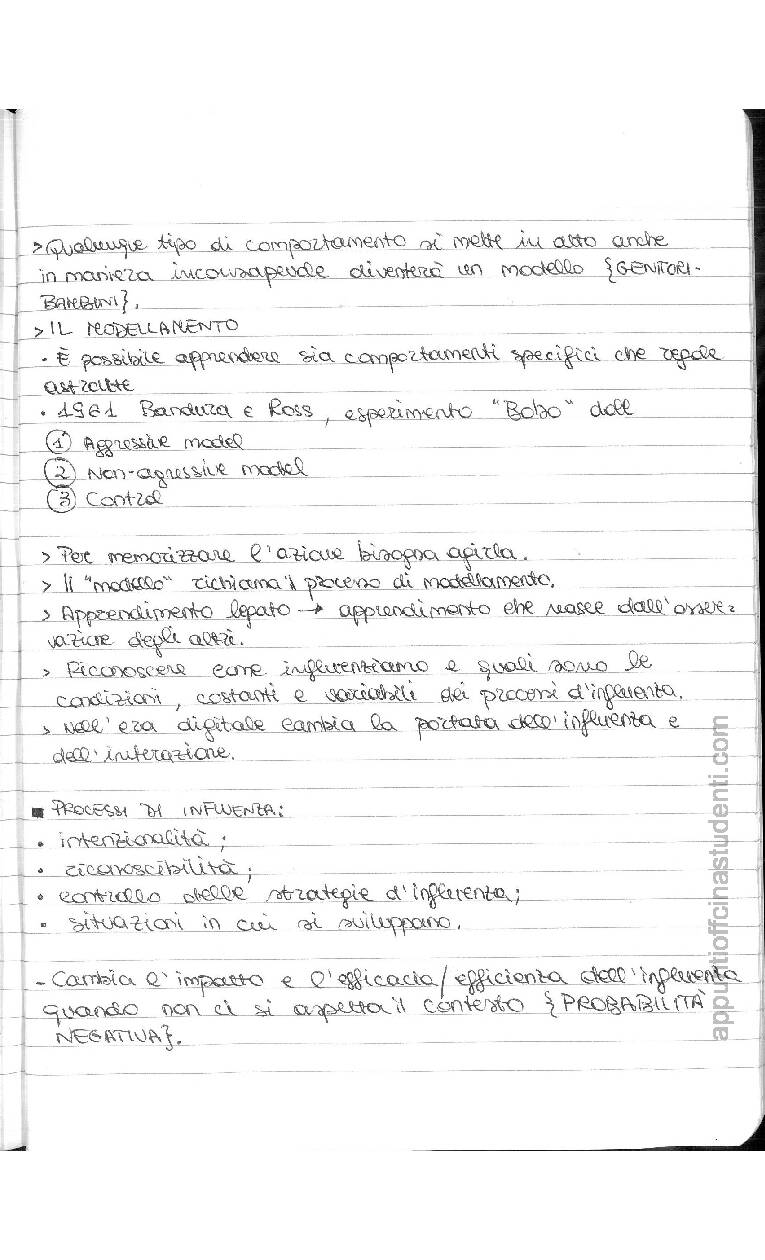 > Qualunque tipo di comportamento si mette in atto anche
in maniera inconsapevole diventerà un modello {GENITORI-
BAMBINI}.
> IL MODELLAMENTO
· È possibile apprendere sia comportamenti specifici che regole
astratte
· 1961 Bandura e Ross, esperimento "Bobo" doll
① Aggressive model
② Non-agressive model
③ Control
> Per memorizzare l'azione bisogna agirla.
> Il "modello" richiama il processo di modellamento.
> Apprendimento legato → apprendimento che nasce dall'osser=
vazione degli altri.
> Riconoscere come influenziamo e quali sono le
condizioni, costanti e variabili dei processi d'influenza.
> Nell'era digitale cambia la portata dell'influenza e
dell'interazione.
■ PROCESSI DI INFLUENZA:
• intenzionalità;
• riconoscibilità;
• controllo delle strategie d'influenza;
• situazioni in cui si sviluppano.
- Cambia l'impatto e l'efficacia/efficienza dell'influenza
quando non ci si aspetta il contesto {PROBABILITÀ
NEGATIVA}.
appuntiofficinastudenti.com